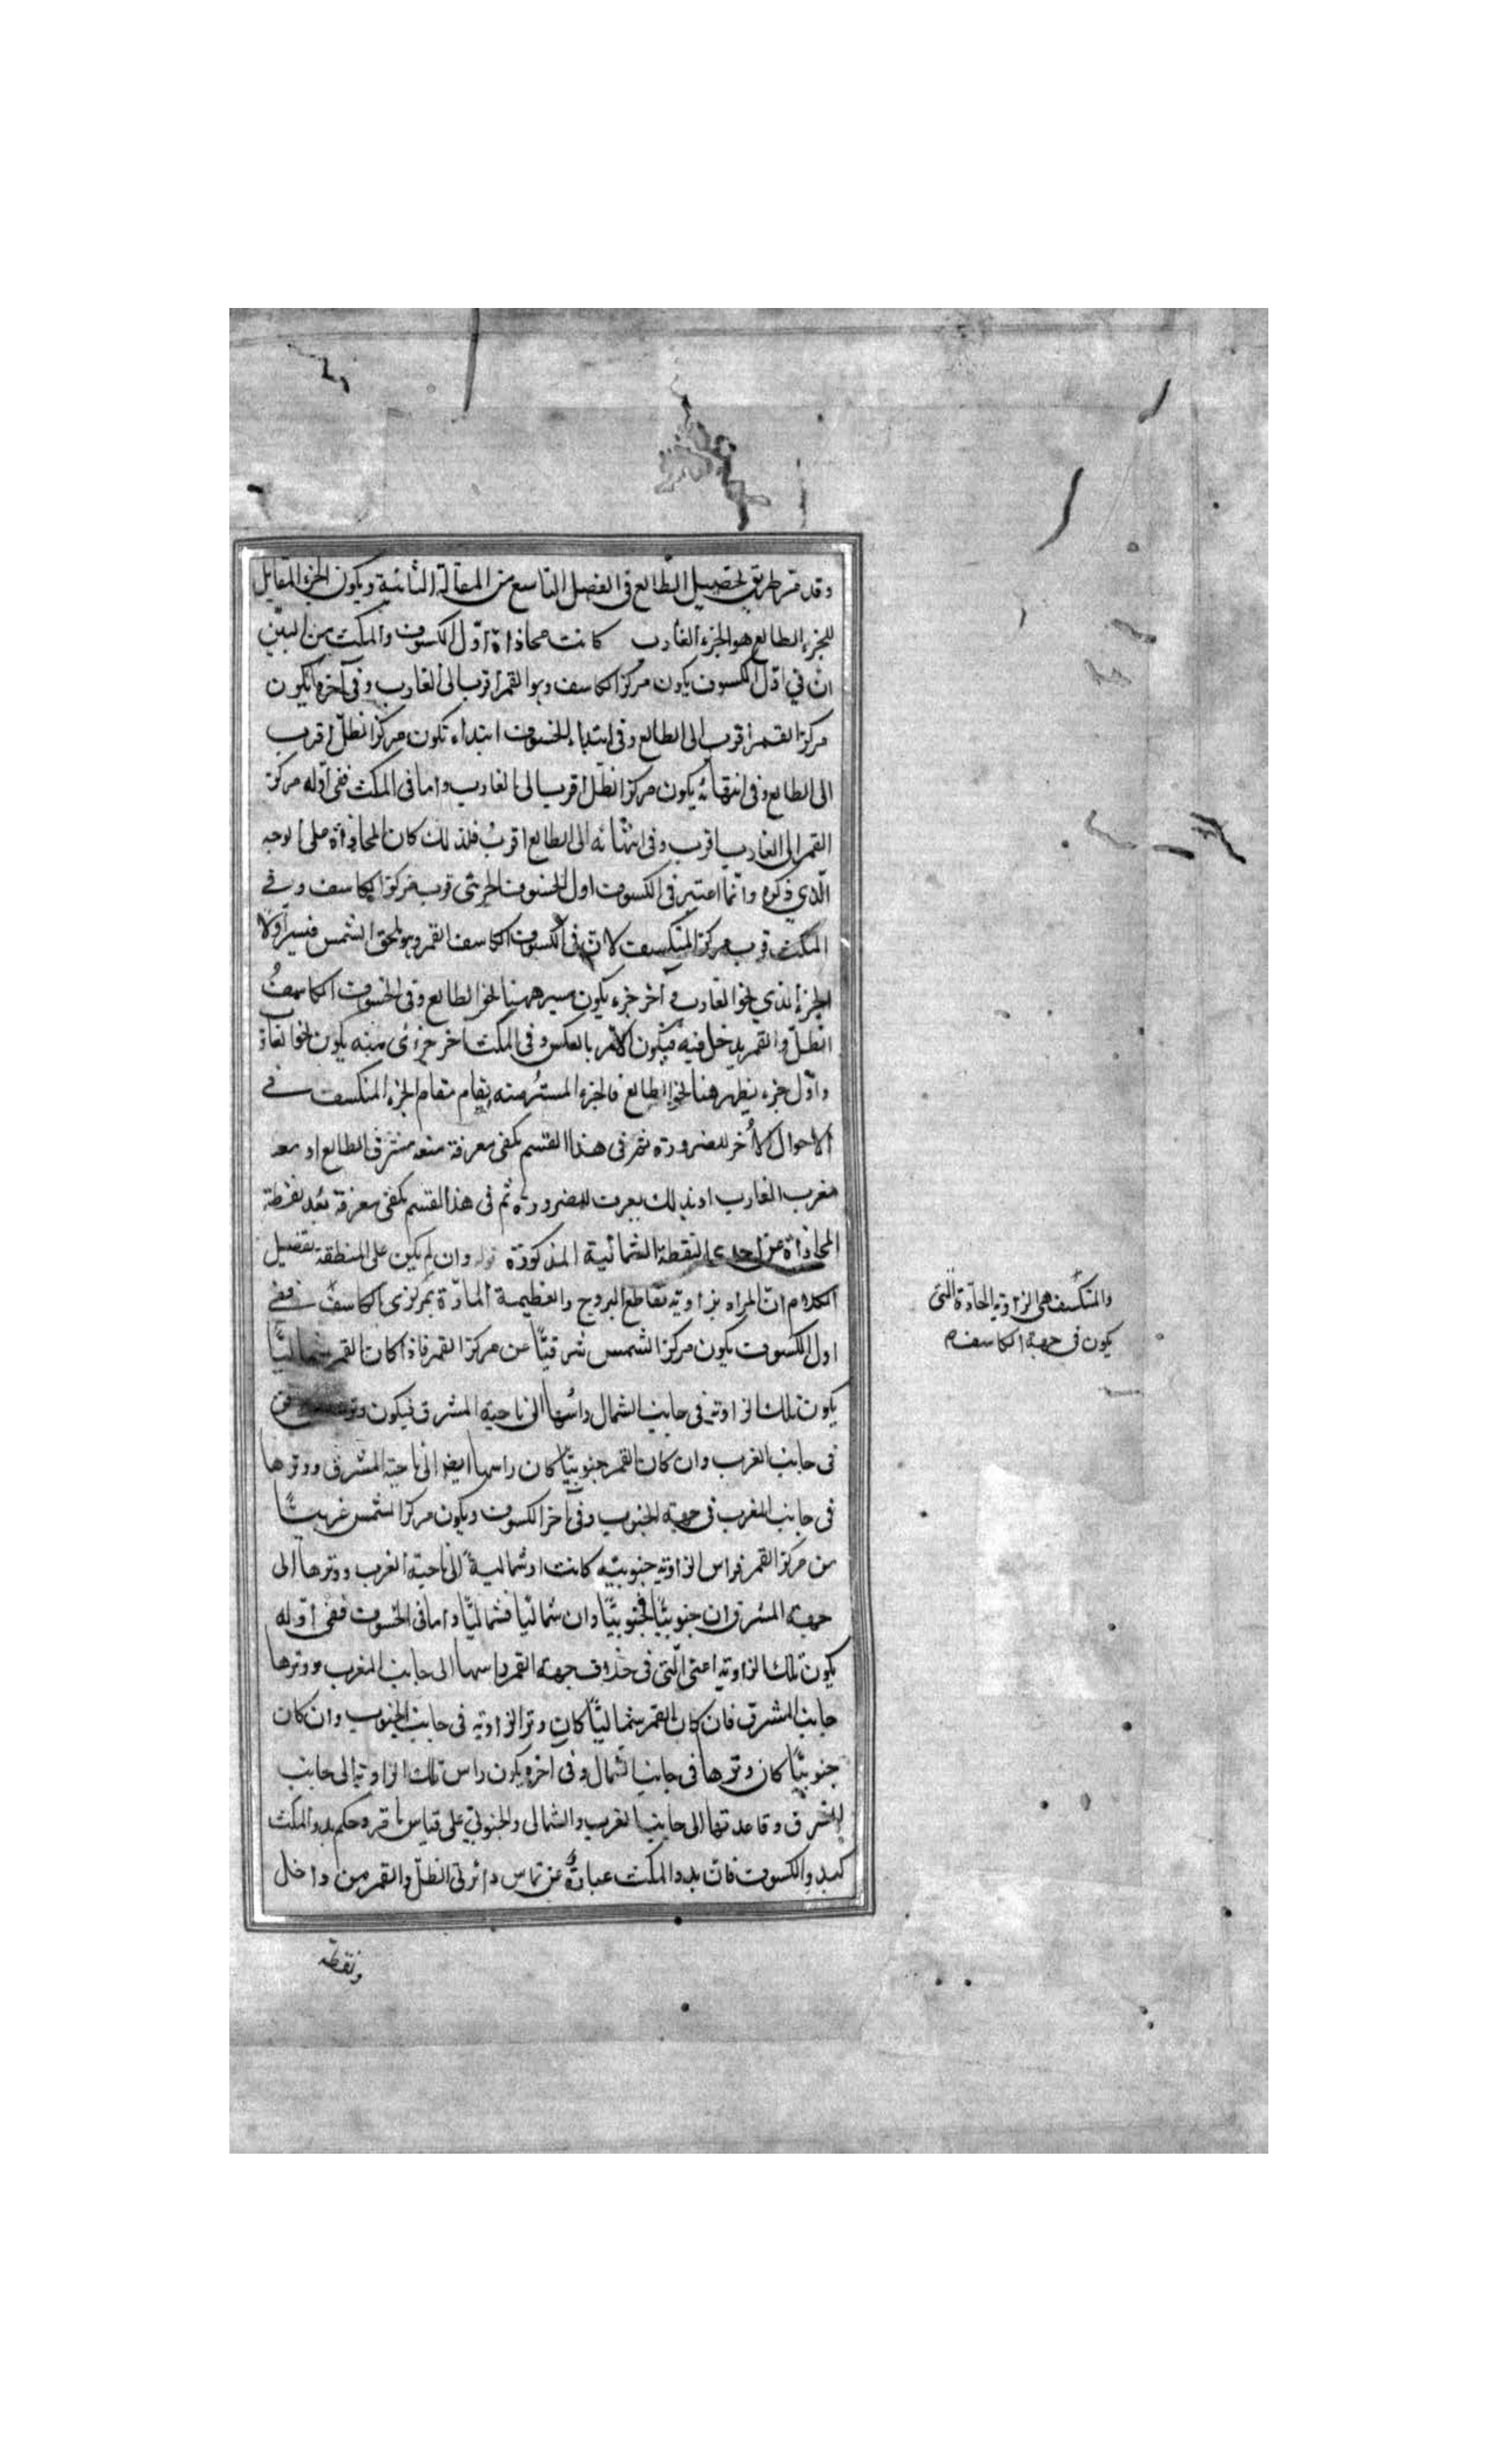 وقد مر طريق تحصيل الطالع فى الفصل التاسع من المقالة الثانية ويكون الجزء المقابل
للجزء الطالع هو الجزء الغارب كانت محاذاة اول الكسوف والمكث من البين
ان في اول الكسوف يكون مركز الكاسف وهو القمر اقرب الى الغارب وفى آخره يكون
مركز القمر اقرب الى الطالع وفى ابتداء الخسوف ابتداء تكون مركز الظل اقرب
الى الطالع وفى انتهائه يكون مركز الظل اقرب الى الغارب واما فى المكث ففى اوله مركز
القمر الى الغارب اقرب وفى انتهائه الى الطالع اقرب فلذلك كان المحاذاة على الوجه
الذي ذكره وانما اعتبر فى الكسوف اول الخسوف الجزئى قرب مركز الكاسف وفي
المكث قرب مركز المنكسف لان فى الكسوف الكاسف القمر وهو يلحق الشمس فيستر اولا
الجزء الذي نحو الغارب و آخر جزء يكون مسيرهمنا نحو الطالع وفى الخسوف الكاسف
الظل والقمر يدخل فيه فيكون الامر بالعكس وفى المكث آخر جزئى منه يكون نحو الغار
واول جزء يظهر هنا نحو الطالع فالجزء المستر منه يقام مقام الجزء المنكسف في
الاحوال الأخر للضرورة ثم فى هذا القسم يكفى معرفة سعة مشرق الطالع او سعة
مغرب الغارب اوبذلك يعرف للضرورة ثم فى هذا القسم يكفى معرفة بعد نقطة
المحاذاة عن احدى النقطة الشمالية المذكورة قوله وان لم يكن على المنطقة تفصيل
الكلام ان المراد بزاوية تقاطع البروج والعظيمة المارة بمركزى الكاسف ففى
اول الكسوف يكون مركز الشمس شرقيا عن مركز القمر فاذا كان القمر شماليا
يكون تلك الزاوية فى جانب الشمال راسها الى ناحية المشرق فيكون
فى جانب الغرب وان كان القمر جنوبيا كان راسها ايضا الى ناحية المشرق ووترها
فى جانب المغرب فى جهة الجنوب وفى آخر الكسوف ويكون مركز الشمس غربيا
من مركز القمر فراس الزاوية جنوبية كانت او شمالية الى ناحية الغرب ووترها الى
جهة المشرق ان جنوبيا فجنوبيا وان شماليا فشماليا واما فى الخسوف ففى اوله
يكون تلك الزاوية اعنى التى فى خلاف جهة القمر راسها الى جانب المغرب ووترها
جانب المشرق فان كان القمر شماليا كان وتر الزاوية فى جانب الجنوب وان كان
جنوبيا كان وترها فى جانب الشمال وفى آخره يكون راس تلك الزاوية الى جانب
المشرق وقاعدتها الى جانب الغرب والشمالى والجنوبي على قياس ما مر وحكم بدو المكث
كبدو الكسوف فان بدو المكث عبارة عن تماس دائرتى الظل والقمر من داخل
ونقطة
والمنكسف هى الزاوية الحادة التى
يكون فى جهة الكاسف